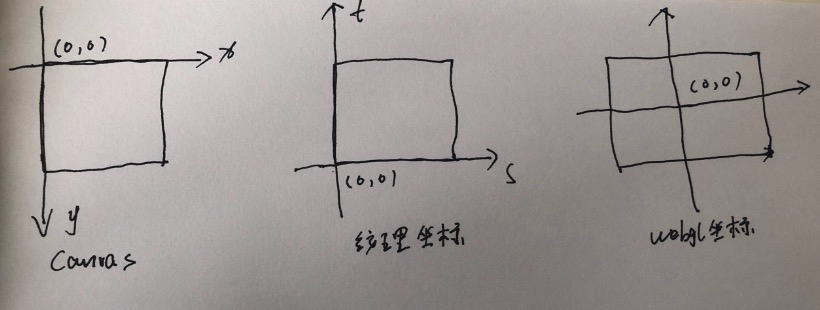 (0,0)
x
y
Canvas
t
(0,0)
s
纹理坐标
(0,0)
webgl坐标